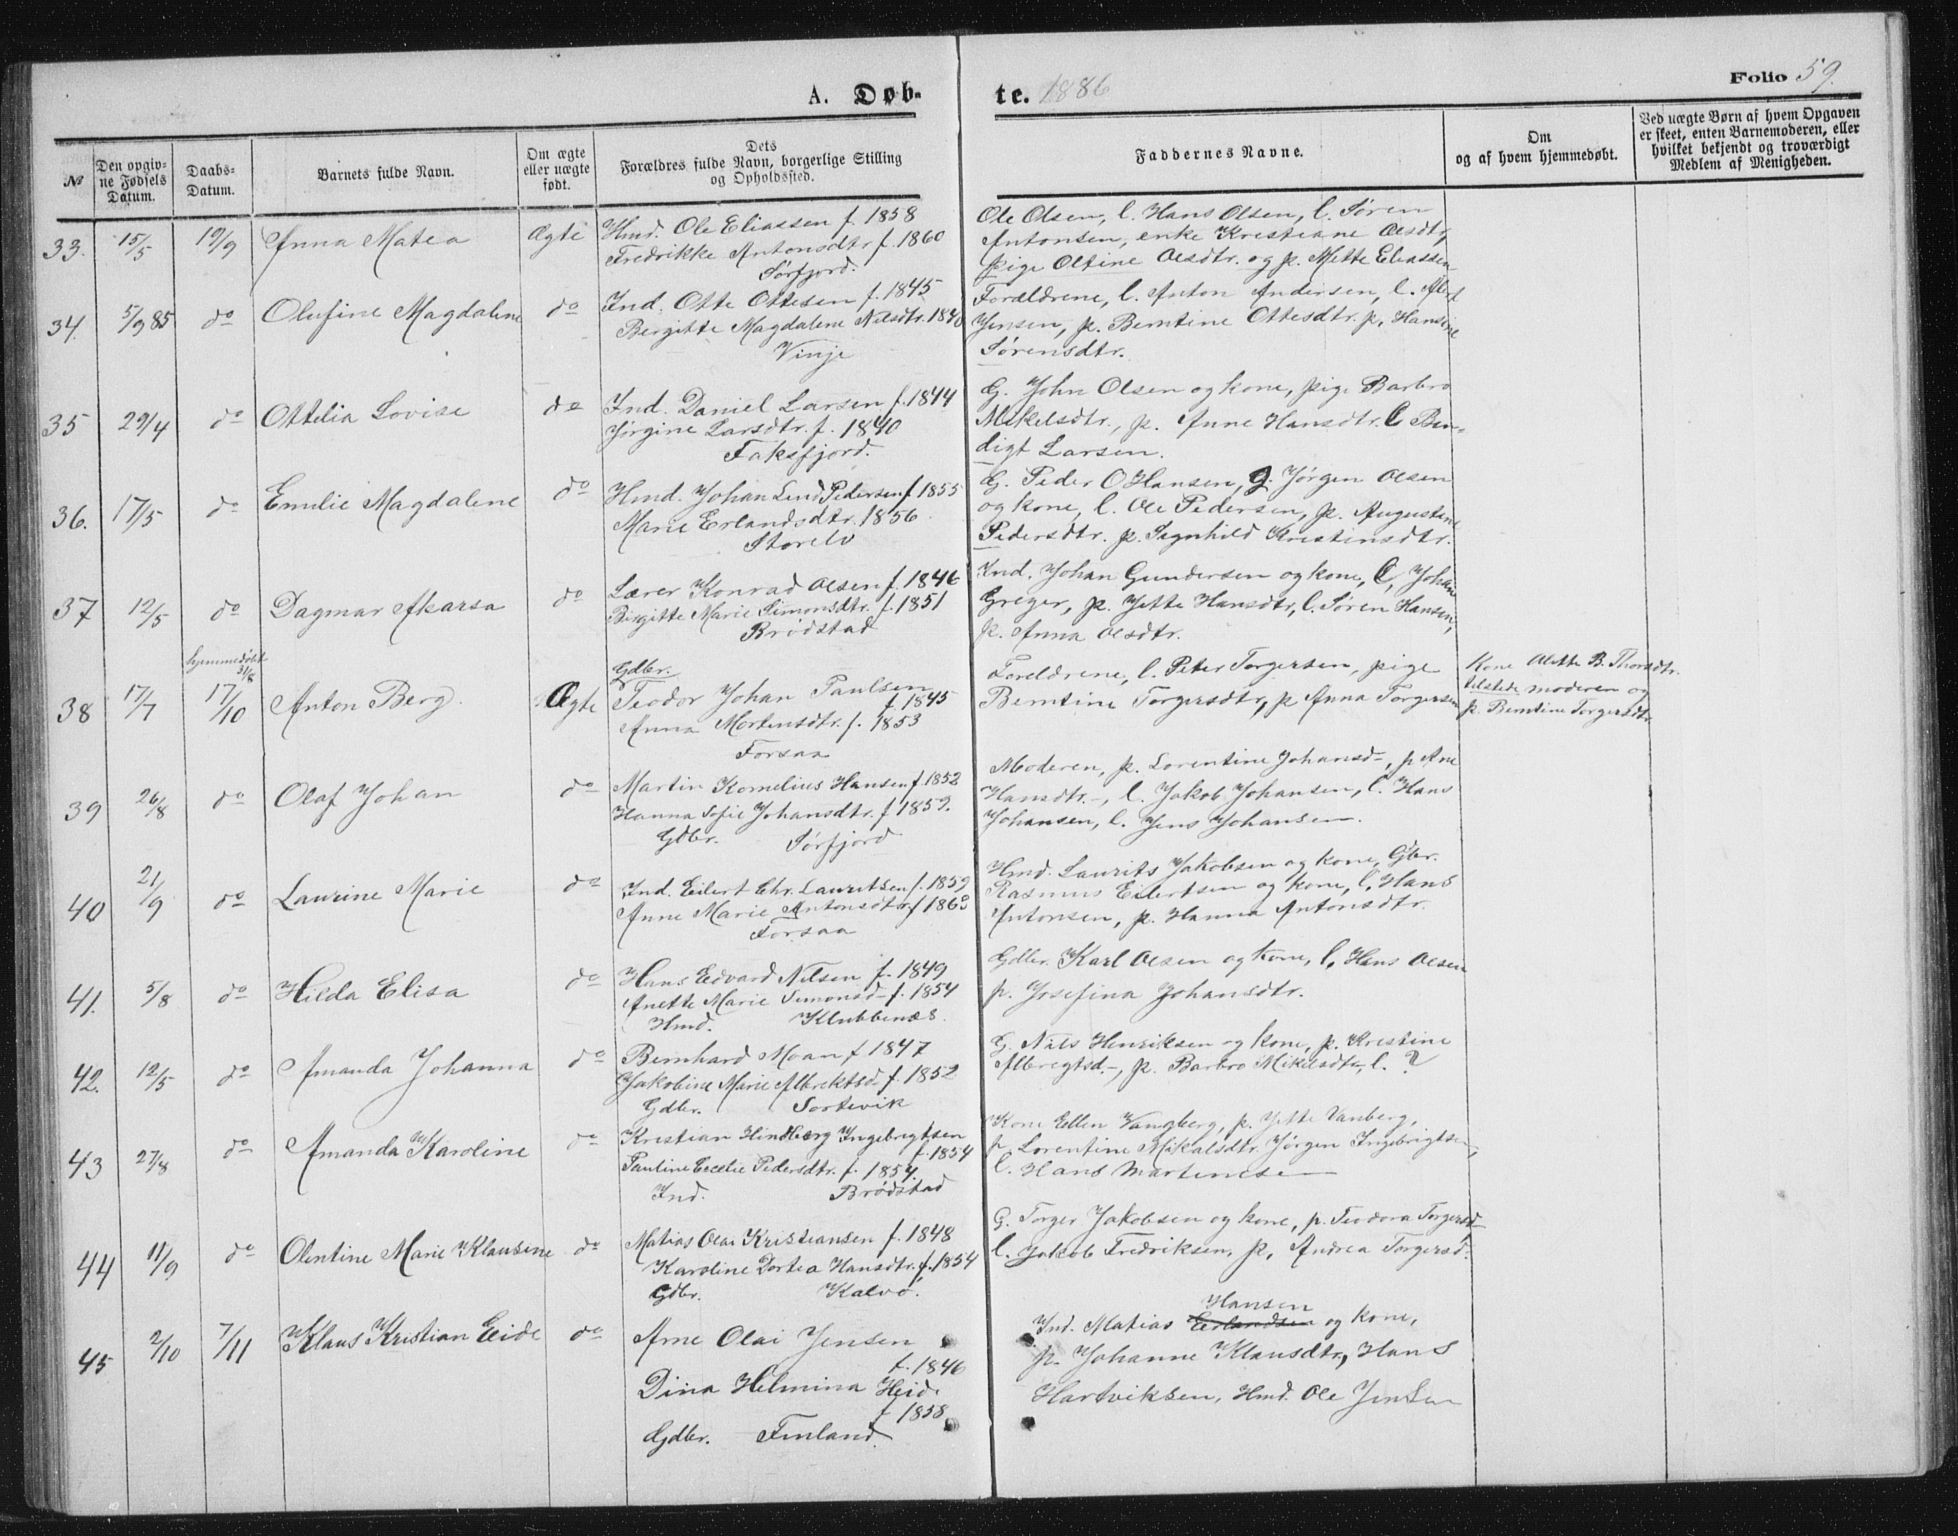 A. Døb- te. 1886
Folio 59.
№
Den opgiv-
ne Fødsels
Datum.
Daabs-
Datum.
Barnets fulde Navn.
Om ægte
eller uægte
født.
Dets
Forældres fulde Navn, borgerlige Stilling
og Opholdssted.
Faddernes Navne.
Om
og af hvem hjemmedøbt.
Ved uægte Børn af hvem Opgaven
er skeet, enten Barnemoderen, eller
hvilket bekjendt og troværdigt
Medlem af Menigheden.
33. 15/5 19/9 Anna Matea Ægte
Hmd. Ole Eliassen f. 1858
Fredrikke Antonsdtr f. 1860
Sørfjord.
Ole Olsen, l. Hans Olsen, l. Søren
Antonsen, enke Kristiane Olsdtr,
pige Oltine Olsdtr. og p. Mette Eliassen
34. 5/9 85 do Olufine Magdalene do
Ind. Otte Ottesen f. 1845
Bergitte Magdalene Nilsdtr. 1840
Vinje
Forældrene, l. Anton Andersen, l.
Jensen, p. Berntine Ottesdtr. p. Hansine
Sørensdtr.
35 29/4 do Ottelia Lovise do
Ind. Daniel Larsen f. 1844
Jørgine Larsdtr. f. 1840
Faksfjord.
G. John Olsen og kone, pige Barbro
Mikelsdtr., p. Anne Hansdtr. l Ben-
digt Larsen.
36. 17/5 do Emilie Magdalene do
Hmd. Johan Lind Pedersen f 1855
Marie Erlandsdtr. 1856
Storelv
G. Peder O Hansen, g. Jørgen Olsen
og kone, l. Ole Pedersen, p. Augustine
Pedersdtr. p. Signhild Kristinsdtr.
37 12/5 do Dagmar Akarsa do
Lærer Konrad Olsen f. 1846
Birgitte Marie Simonsdtr. f. 1851
Brødstad
Ind. Johan Gundersen og kone, l, Johan
Greger, p. Jette Hansdtr, l. Søren Hansen,
p. Anna Olsdtr.
hjemmedøbt
31/8
38 17/7 17/10 Anton Berg. Ægte
Gdbr.
Teodor Johan Paulsen
f 1845
Anna Mortensdtr. f. 1853
Forsaa
Foreldrene, l. Peter Torgersen, pige
Berntine Torgersdtr, p Anna Torgersen
Kone Olette B. Thorsdtr.
tilstede moderen og
p. Berntine Torgersdtr.
39 26/8 do Olaf Johan do
Martin Kornelius Hansen f 1852
Hanna Sofie Johansdtr. f 1859.
Gdbr. Sørfjord
Moderen, p. Lorentine Johansd-, p Ane
Hansdtr.-, l. Jakob Johansen, l. Hans
Johansen, l. Jens Johansen.
40 21/9 do Laurine Marie do
Ind. Eilert Chr. Lauritsen f. 1859
Anne Marie Antonsdtr f 1863
Forsaa
Hmd. Laurits Jakobsen og kone, Gbr.
Rasmus Eilertsen og kone, l. Hans
Antonsen, p. Hanna Antonsdtr.
41. 5/8 do Hilda Elisa do
Hans Edvard Nilsen f. 1849
Anette Marie Simonsd- f. 1854
Hmd. Klubbenæs.
Gdbr. Karl Olsen og kone, l. Hans Olsen
p. Josefina Johansdtr.
42. 12/5 do Amanda Johanna do
Bernhard Moan f 1847
Jakobine Marie Albrektsd- f. 1852
Gdbr. Sortevik
G. Nils Henriksen og kone, p. Kristine
Albregtsd.-, p. Barbro Mikelsdtr, l. ?
43 27/8 do Amanda Karoline do
Kristian Hindberg Ingebrigtsen
f. 1854
Pauline Cecelie Pedersdtr. f. 1854.
Ind. Brødstad
Kone Ellen Vangberg, p. Jette Vanberg,
p. Lorentine Mikalsdtr. Jørgen Ingebrigtsen,
l. Hans Martinesen
44 11/9 do Olentine Marie Klausine do
Matias Olai Kristiansen f. 1848
Karoline Dortea Hansdtr. f. 1854
Gdbr. Kalvø.
G. Torger Jakobsen og kone, p. Teodora Torgersd-
l. Jakob Fredriksen, p. Andrea Torgersd-.
45 2/10 7/11 Klaus Kristian Eide do
Arne Olai Jensen
f. 1846
Dina Helmina Heide
f 1858.
Gdbr. Finland.
Hansen
Ind. Matias Erlandsen og kone,
p. Johanne Klausdtr, Hans
Hartviksen, Hmd. Ole Jensen